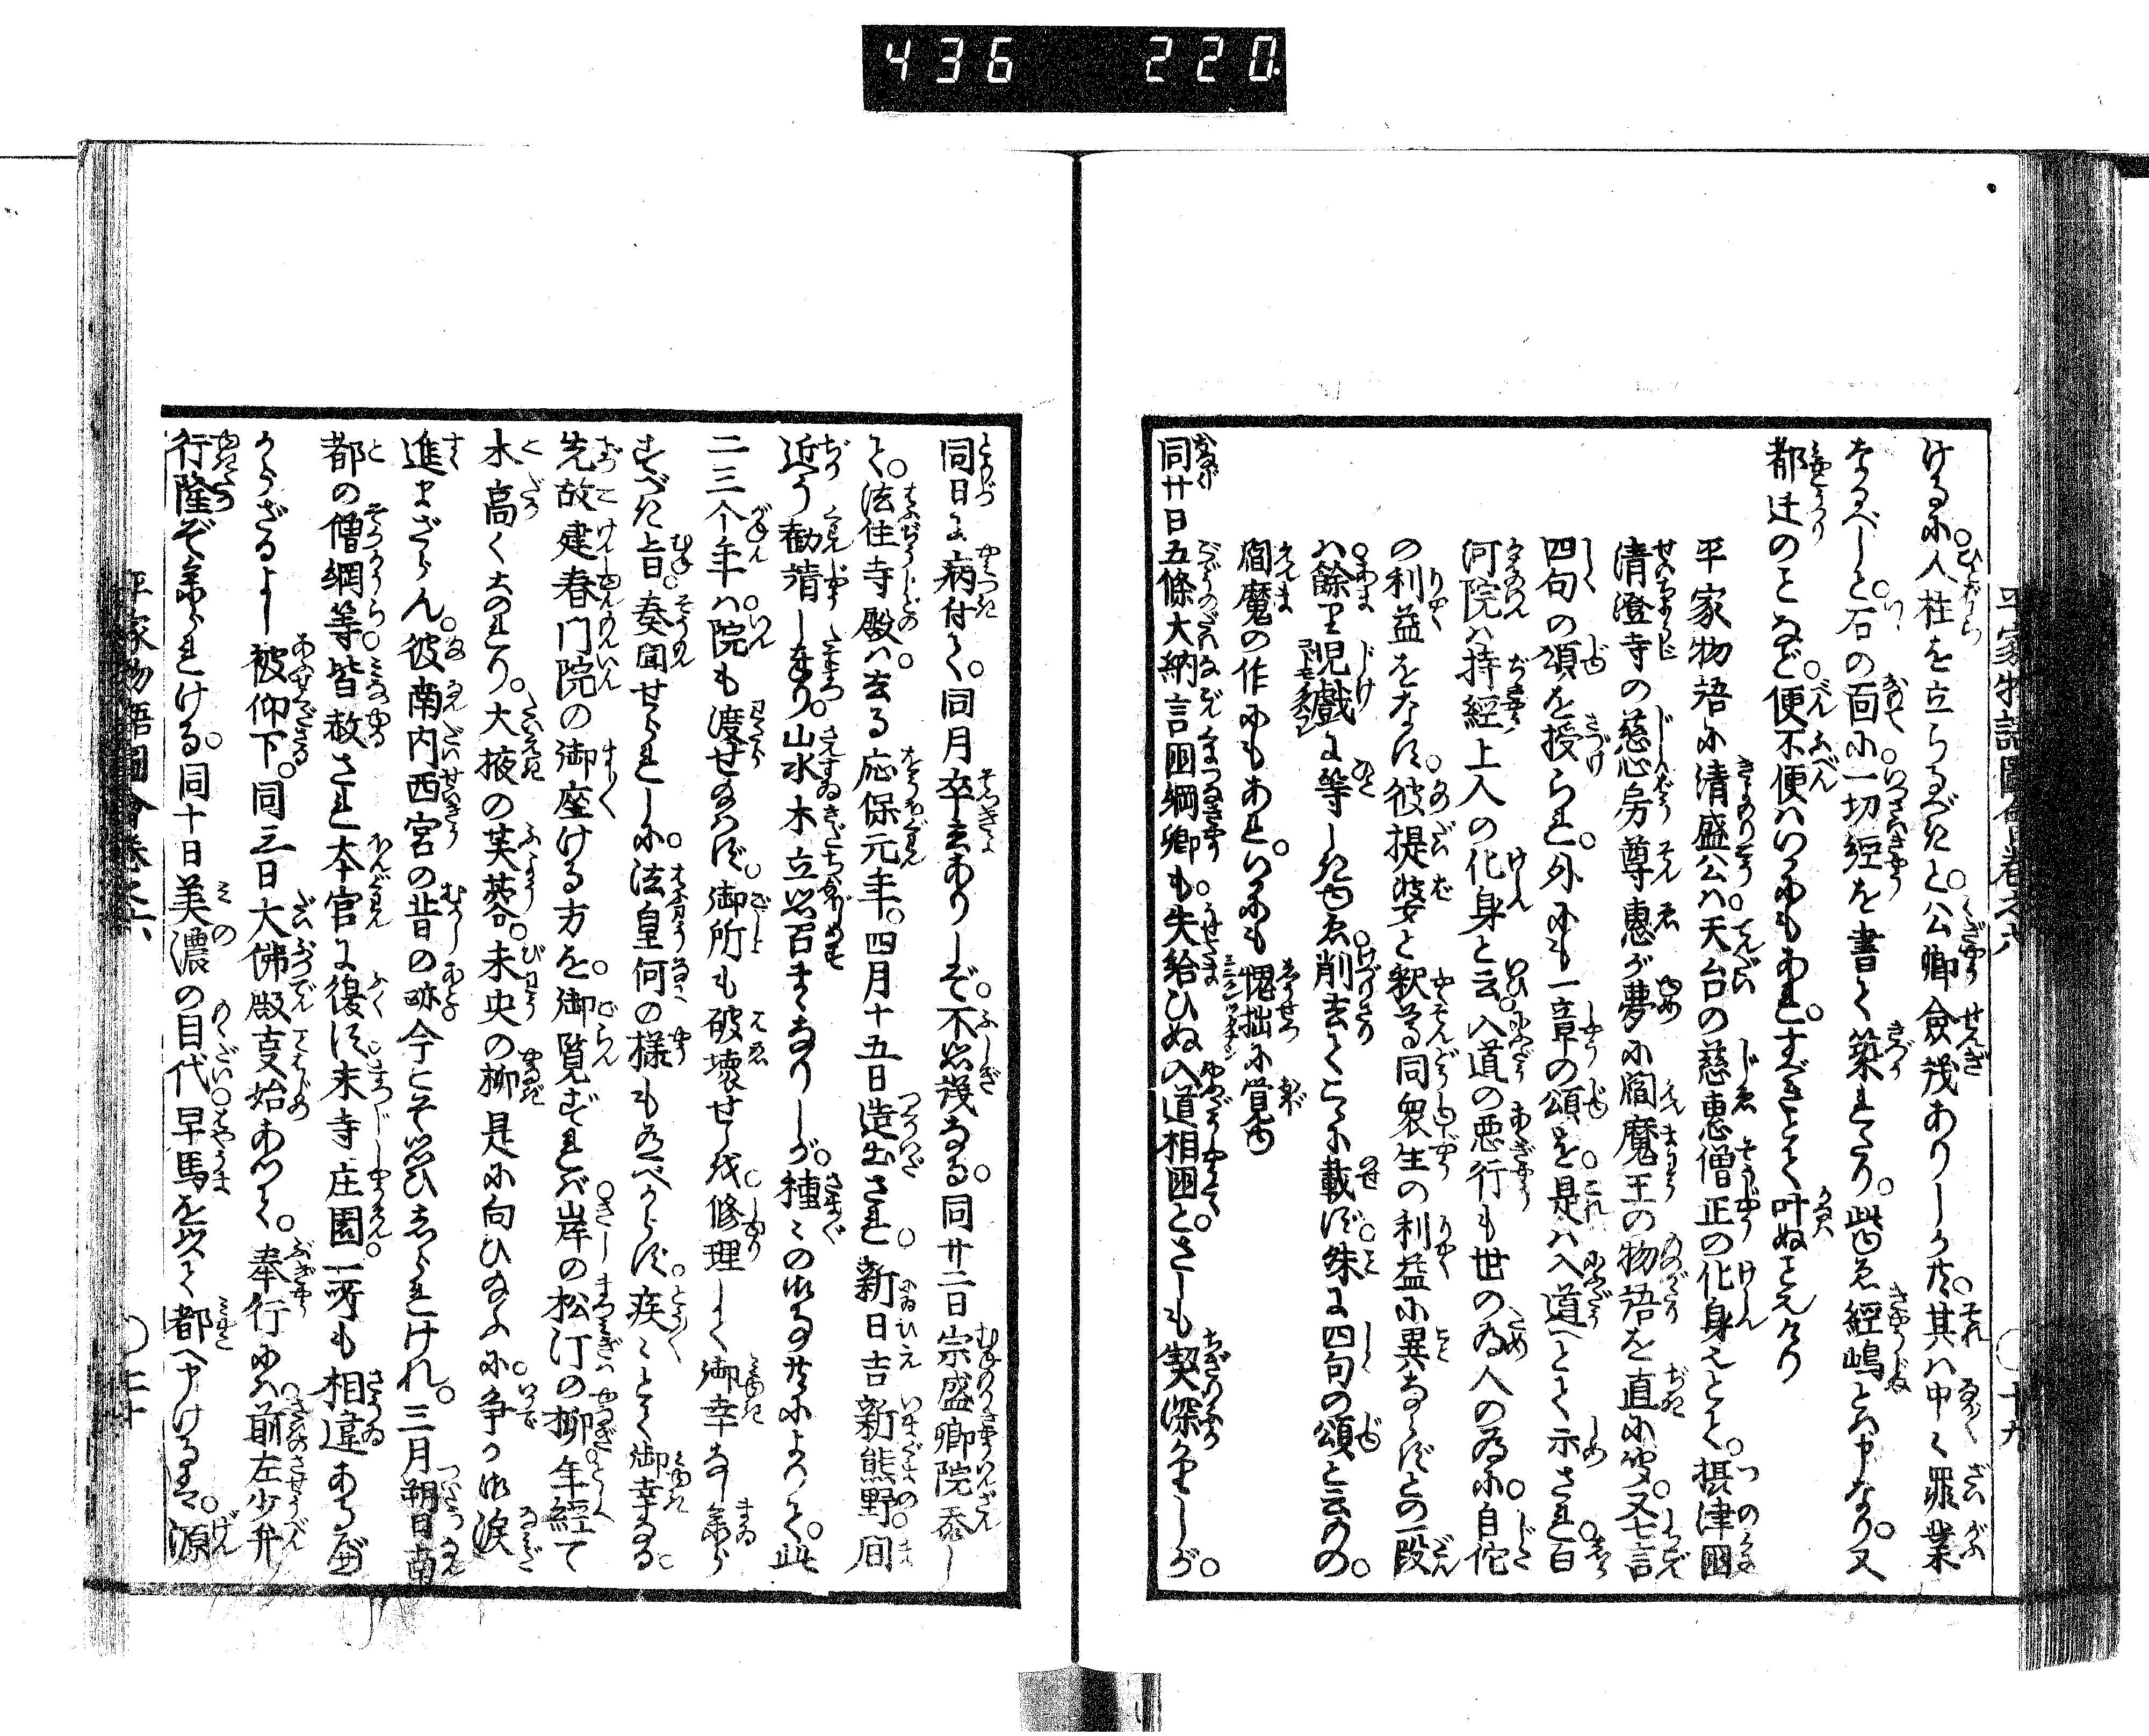 436 220
平家物語圖會卷之六 十九
ける小人柱を立らるべきと公卿僉議ありしか共其ハ中〻罪業
なるべしと石の面小一切経を書て築れたり此ゆゑ経嶋とハ申なり又
都迁のことなど便不便ハいかにもあれすべきとて叶ぬことハなかりけり
平家物語小清盛公ハ天台の慈惠僧正の化身とて摂津國
清澄寺の慈心房尊惠が夢小閻魔王の物語を直小聞又七言
四句の頌を授られ外にも一章の頌を是ハ入道へとて示され白
河院ハ持經上人の化身と云入道の悪行も世の為人の為小自佗
の利益をなす彼提婆と釈尊同衆生の利益小異ならずとの一段
ハ餘里児戯ま等しきゆゑ削去てこゝ小載ず殊ま四句の頌と云もの
閻魔の作にもあれいかにも愧拙小覚ゆ
同廿日五條大納言国綱卿も失給ひぬ入道相国とさしも契深かりしが
同日ま病付て同月卒去ありしぞ不思議なる同廿二日宗盛卿院参し
て法住寺殿ハ去る応保元年四月十五日造出され新日吉新熊野間
近う勧請し奉り山水木立思召まゝなりしが種〻の御事共によつて此
二三个年ハ院も渡せ給ハず御所も破壊せしを修理して御幸なし参ら
すべき旨奏聞せられし小法皇何の様も有べからず疾〻とて御幸なる
先故建春門院の御座ける方を御覧ずれバ岸の松汀の柳年経て
木高くなれり大掖の芙蓉未央の柳是小向ひ給ふ小争か御涙
進まざらん彼南内西宮の昔の跡今こそ思ひしられけれ三月朔日南
都の僧綱等皆赦され本官ま復ず末寺庄園一所も相違ある
からざるよし被仰下同三日大佛殿事始あつて奉行にハ前左少弁
行隆ぞ参られける同十日美濃の目代早馬を以て都へ申けるハ源
平家物語圖會卷之六 二十